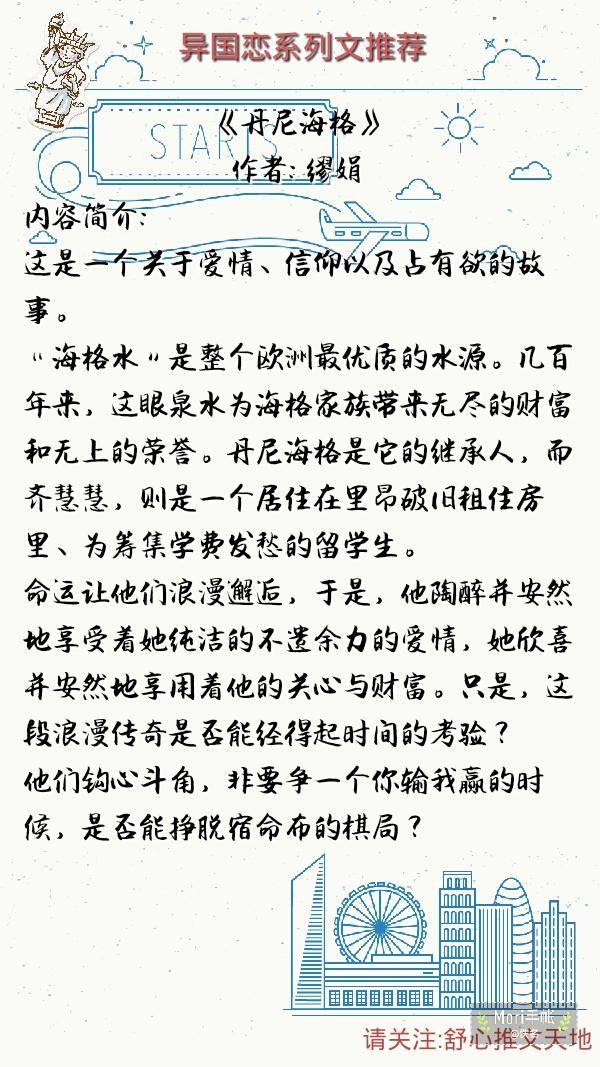 异国恋系列文推荐
START
《丹尼海格》
作者：缪娟
内容简介：
这是一个关于爱情、信仰以及占有欲的故
事。
“海格水”是整个欧洲最优质的水源。几百
年来，这眼泉水为海格家族带来无尽的财富
和无上的荣誉。丹尼海格是它的继承人，而
齐慧慧，则是一个居住在里昂破旧租住房
里、为筹集学费发愁的留学生。
命运让他们浪漫邂逅，于是，他陶醉并安然
地享受着她纯洁的不遗余力的爱情，她欣喜
并安然地享用着他的关心与财富。只是，这
段浪漫传奇是否能经得起时间的考验？
他们钩心斗角，非要争一个你输我赢的时
候，是否能挣脱宿命布的棋局？
Mori手帐
请关注:舒心推文天地